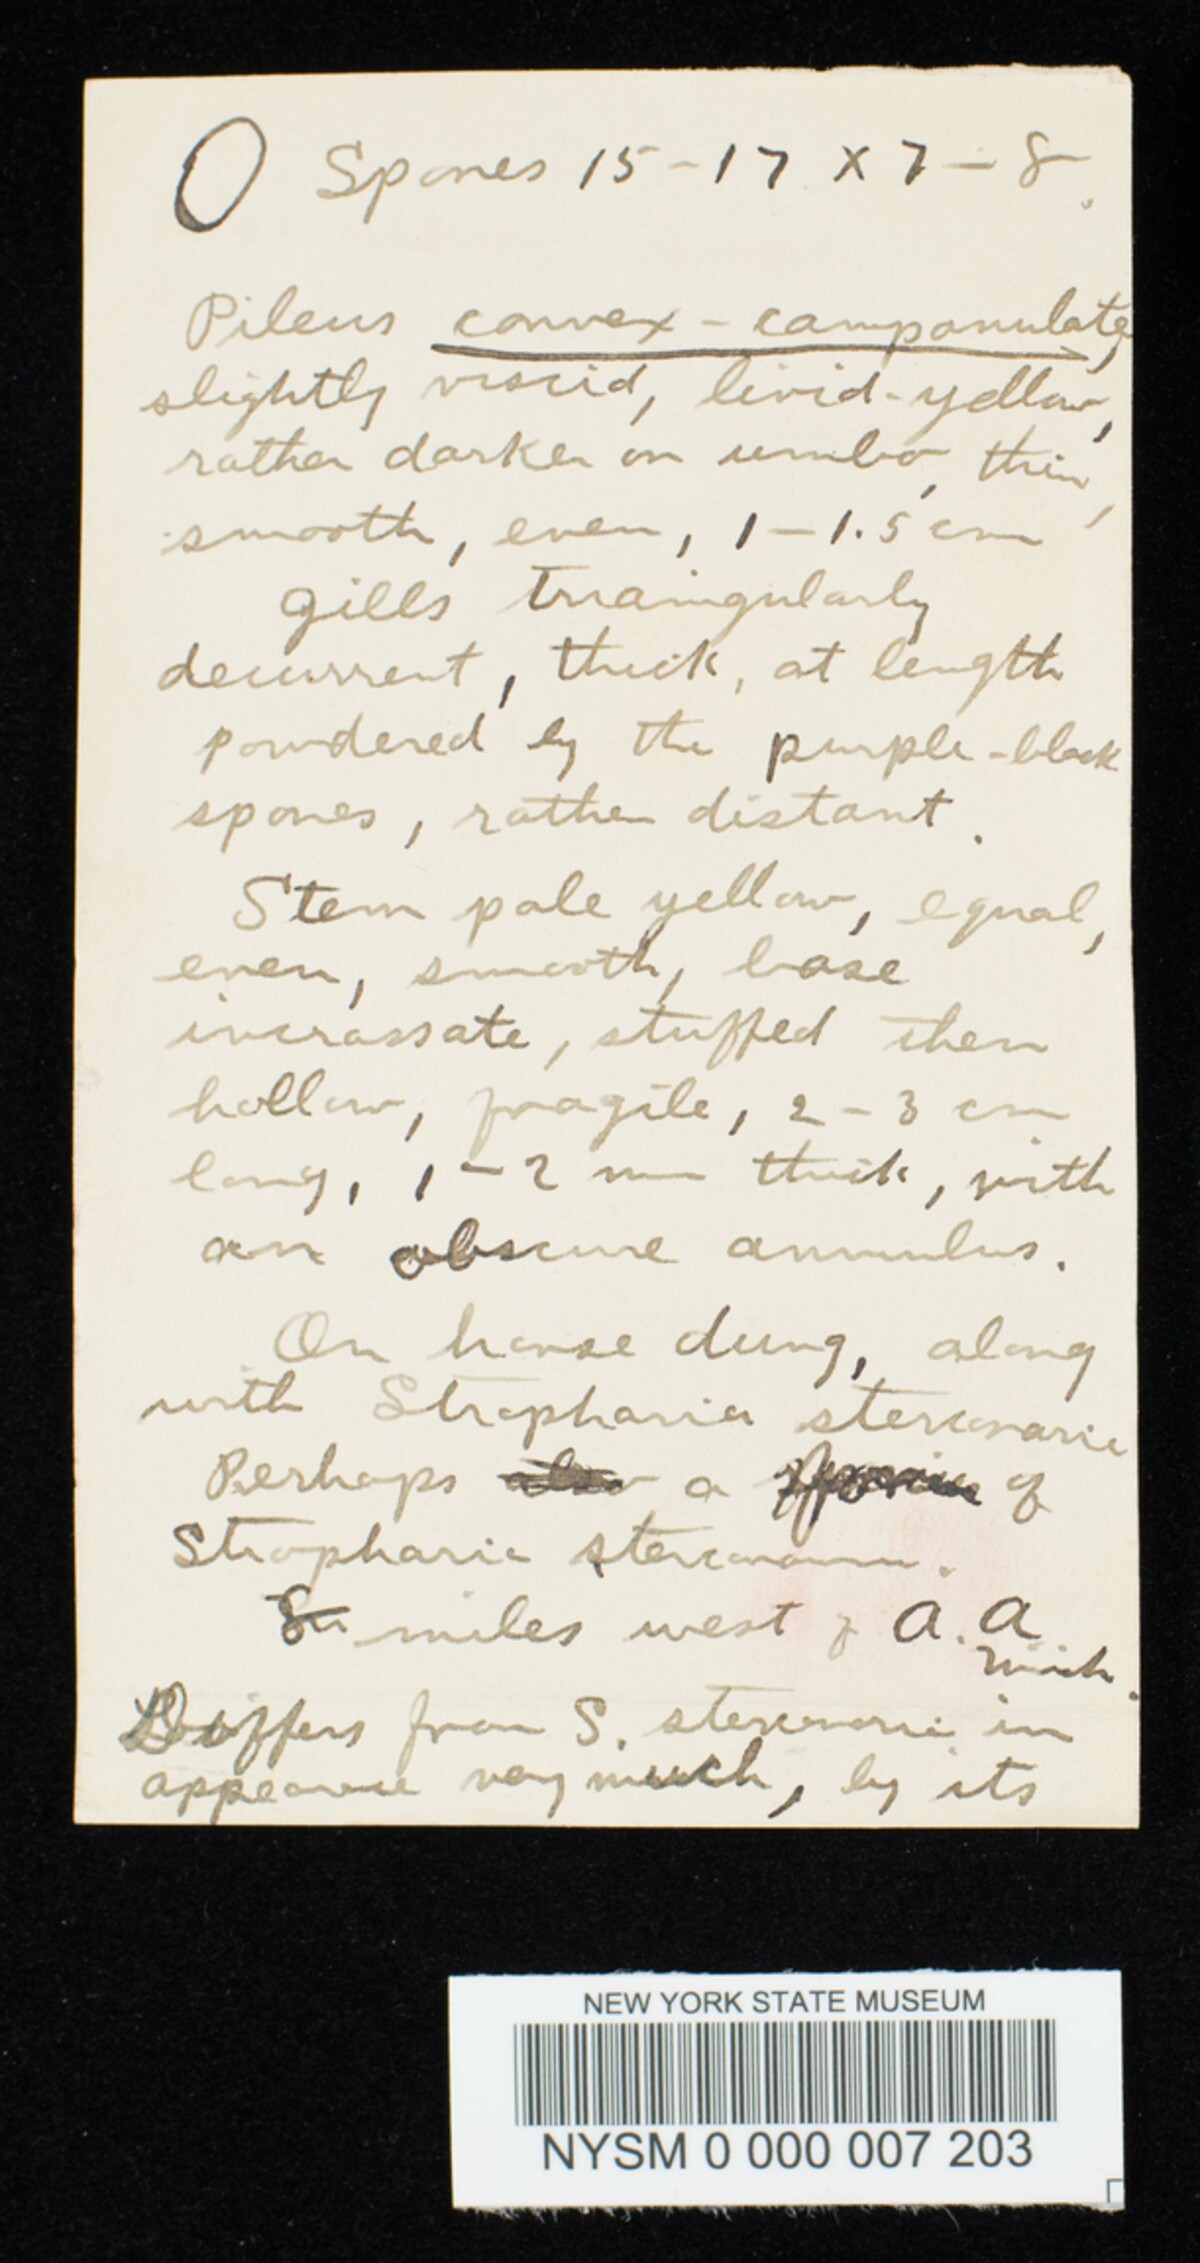 Spores 15-17 x 7-8.
Pileus convex-campanulate,
slightly viscid, livid-yellow,
rather darker on umbo, thin,
smooth, even, 1-1.5 cm
Gills triangularly
decurrent, thick, at length
powdered by the purple-black
spores, rather distant.
Stem pale yellow, equal,
even, smooth, base
incrassate, stuffed then
hollow, fragile, 2-3 cm
long, 1-2 mm thick, with
an obscure annulus.
On horse dung, along
with Stropharia stercoraria
Perhaps also a of
Stropharia
miles west of A. A.
Mich.
Differs from S. stercoraria in
appearance very much, by its
NEW YORK STATE MUSEUM
NYSM 0 000 007 203